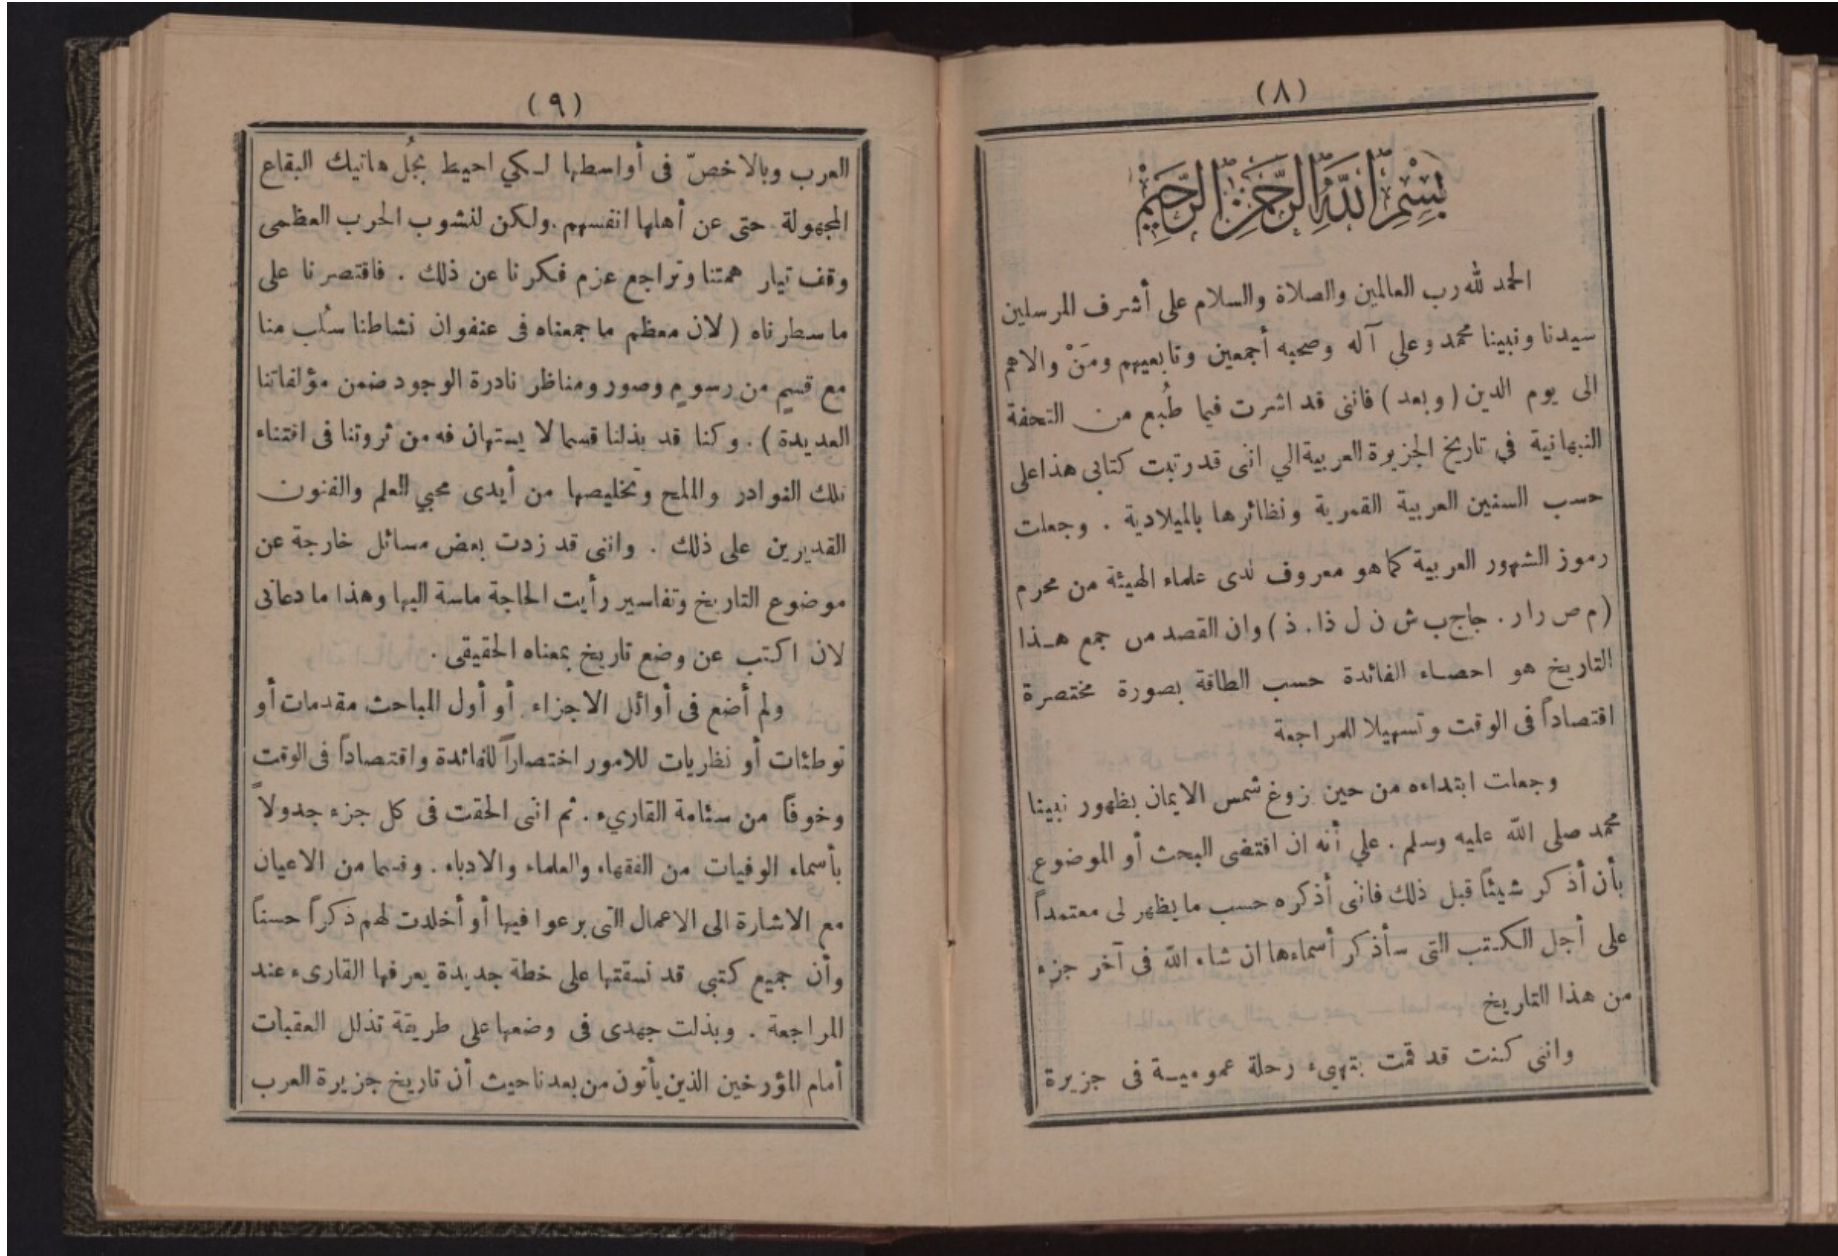 (٨)
بسم الله الرحمن الرحيم
الحمد لله رب العالمين والصلاة والسلام على أشرف المرسلين
سيدنا ونبينا محمد وعلى آله وصحبه أجمعين وتابعيهم ومَنْ والاهم
الى يوم الدين ( وبعد ) فاننى قد اشرت فيما طُبع من التحفة
النبهانية في تاريخ الجزيرة العربية الي اننى قد رتبت كتابى هذا على
حسب السنين العربية القمرية ونظائرها بالميلادية . وجعلت
رموز الشهور العربية كما هو معروف لدى علماء الهيئة من محرم
( م ص را ر . جا ج ب ش ن ل ذا . ذ ) وان القصد من جمع هـذا
التاريخ هو احصاء الفائدة حسب الطاقة بصورة مختصرة
اقتصاداً فى الوقت وتسهيلا للمراجعة
وجعلت ابتداءه من حين بزوغ شمس الايمان بظهور نبينا
محمد صلى الله عليه وسلم . علي أنه ان اقتضى البحث أو الموضوع
بأن أذكر شيئاً قبل ذلك فانى أذكره حسب ما يظهر لى معتمداً
على أجل الكتب التى سأذكر أسماءها ان شاء الله فى آخر جزء
من هذا التاريخ
واننى كنت قد قمت بتهيء رحلة عمومية فى جزيرة
(٩)
العرب وبالاخصّ فى أواسطها لـكي احيط بجُل هاتيك البقاع
المجهولة حتى عن أهلها انفسهم . ولكن لنشوب الحرب العظمى
وقف تيار همتنا وتراجع عزم فكرنا عن ذلك . فاقتصرنا على
ما سطرناه ( لان معظم ما جمعناه فى عنفوان نشاطنا سُلب منا
مع قسمٍ من رسومٍ وصور ومناظر نادرة الوجود ضمن مؤلفاتنا
العديدة ) . وكنا قد بذلنا قسما لا يستهان فه من ثروتنا فى اقتناء
تلك النوادر والملح وتخليصها من أيدى محبي العلم والفنون
القديرين على ذلك . واننى قد زدت بعض مسائل خارجة عن
موضوع التاريخ وتفاسير رأيت الحاجة ماسة اليها وهذا ما دعانى
لان اكتب عن وضع تاريخ بمعناه الحقيقى .
ولم أضع فى أوائل الاجزاء أو أول المباحث مقدمات أو
توطئات أو نظريات للامور اختصاراً للفائدة واقتصاداً فى الوقت
وخوفاً من سئامة القاريء . ثم اننى الحقت فى كل جزء جدولاً
بأسماء الوفيات من الفقهاء والعلماء والادباء . وقسما من الاعيان
مع الاشارة الى الاعمال التى برعوا فيها أو أخلدت لهم ذكراً حسناً
وأن جميع كتبي قد نسقتها على خطة جديدة يعرفها القارىء عند
المراجعة . وبذلت جهدى فى وضعها على طريقة تذلل العقبات
أمام المؤرخين الذين يأتون من بعدنا حيث أن تاريخ جزيرة العرب